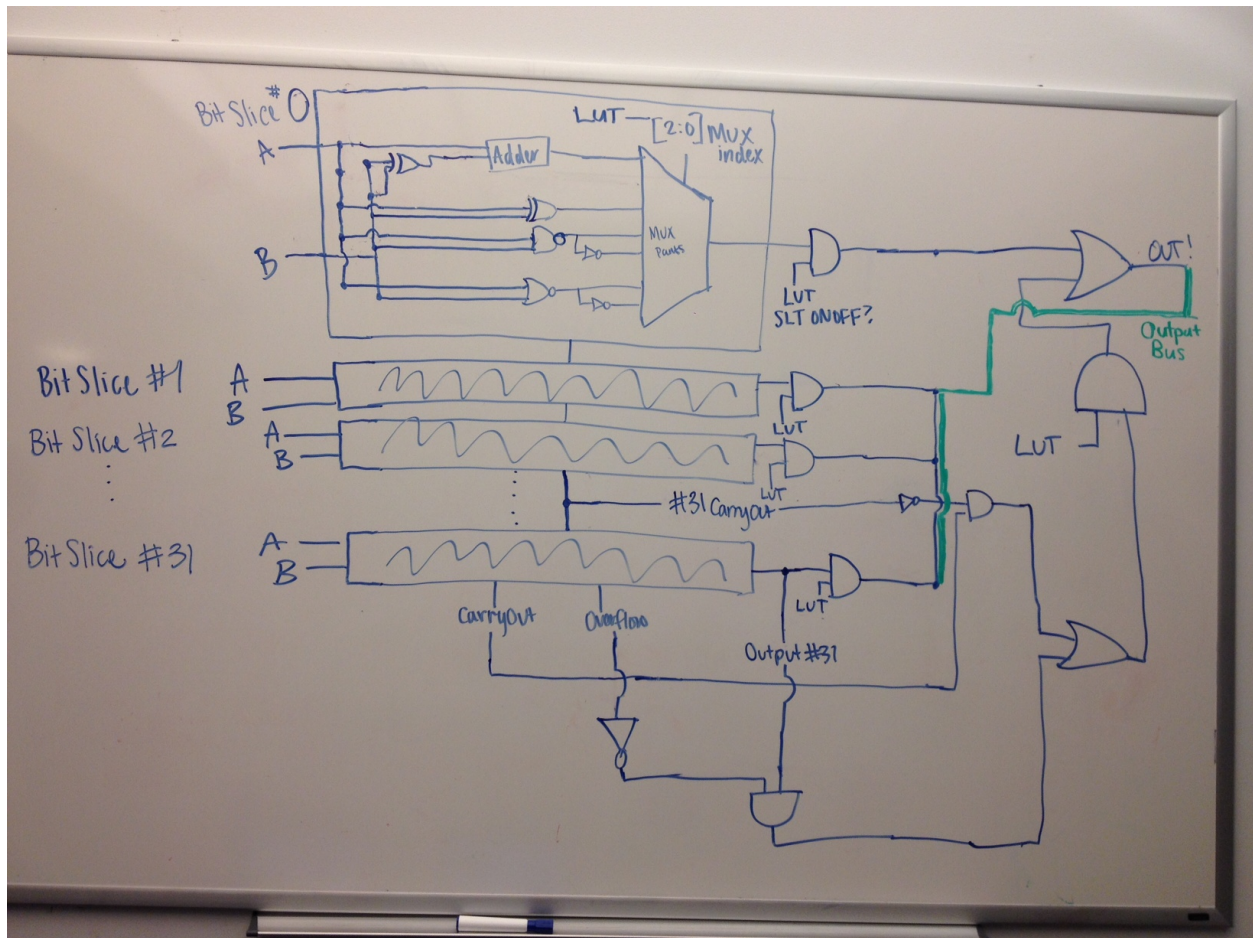 Bit Slice # 0
LUT
[2:0] Mux
index
A
Adder
MUX
B
LUT
SLT ON OFF?
OUT!
Output
Bus
Bit Slice #1
A
B
LUT
Bit Slice #2
A
B
LUT
LUT
#31 CarryOut
Bit Slice #31
A
B
LUT
CarryOut
Overflow
Output #31